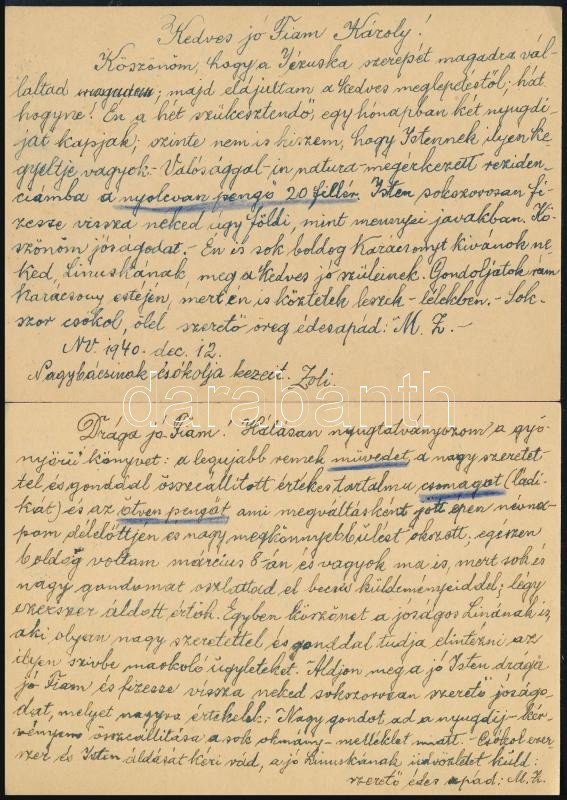 Kedves jó Fiam Károly!
Köszönöm, hogy a Jézuska szerepét magadra vál-
laltad magadra; majd elájultam a kedves meglepetéstől; hát
hogyne! Én a hét szűkesztendő, egy hónapban két nyugdí-
ját kapjak; szinte nem is hiszem, hogy Istennek ilyen ke-
gyeltje vagyok. - Valósággal - in natura - megérkezett reziden-
ciámba a nyolcvan pengő 20 fillér. Isten sokszorosan fi-
zesse vissza neked úgy földi, mint mennyei javakban. Kö-
szönöm jóságodat. - Én is sok boldog Karácsonyt kivánok ne-
ked, Linuskának meg a kedves jó szüleinek. Gondoljatok rám
Karácsony estéjén, mert én is köztetek leszek - lélekben. - Sok-
szor csókol, ölel szerető öreg édesapád: M. Z. -
NV. 1940. dec. 12.
Nagybácsinak csókolja kezeit Zoli.
darabanth
Drága jó Fiam! Hálásan nyugtatványozom a gyö-
nyörű könyvet: a legujabb remek művedet, a nagy szeretet-
tel és gonddal összeállított értékes tartalmu csomagot (ládi-
kát) és az ötven pengőt ami megváltásként jött épen névna-
pom délelőttjén és nagy megkönnyebbülést okozott; egészen
boldog voltam március 8-án és vagyok ma is, mert sok és
nagy gondomat oszlattad el becses küldeményeiddel; légy
ezerszer áldott értök. Egyben köszönet a jóságos Linának is,
aki olyan nagy szeretettel és gonddal tudja elintézni az
ilyen szivbe markoló ügyleteket. Áldjon meg a jó Isten drága
jó Fiam és fizesse vissza neked sokszorosan szerető jóságo-
dat, melyet nagyra értékelek. Nagy gondot ad a nyugdíj-kér-
vényem összeállítása a sok okmány-melléklet miatt. - Csókol ezer-
szer és Isten áldását kéri rád, a jó Linuskának üdvözletet küld:
szerető édes apád: M. Z.